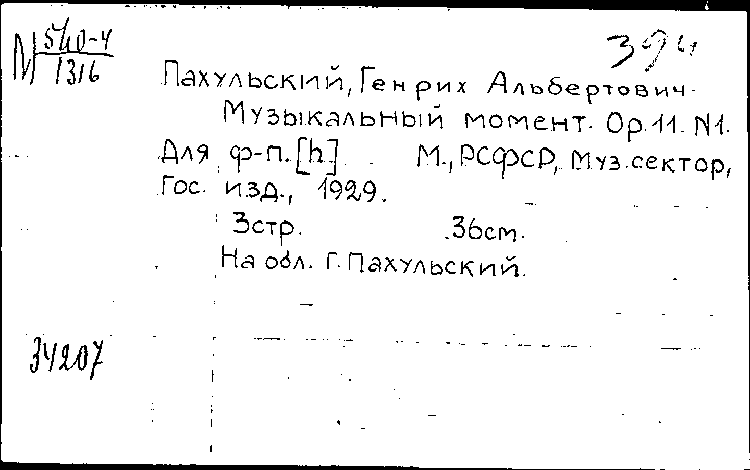 М 540-4
1316
394
Пахульский, Генрих Альбертович.
Музыкальный момент. Op.11. N1.
Для ф-п. [h] М., РСФСР, Муз.сектор,
Гос. изд., 1929.
3стр. 36см.
На обл. Г. Пахульский.
34207